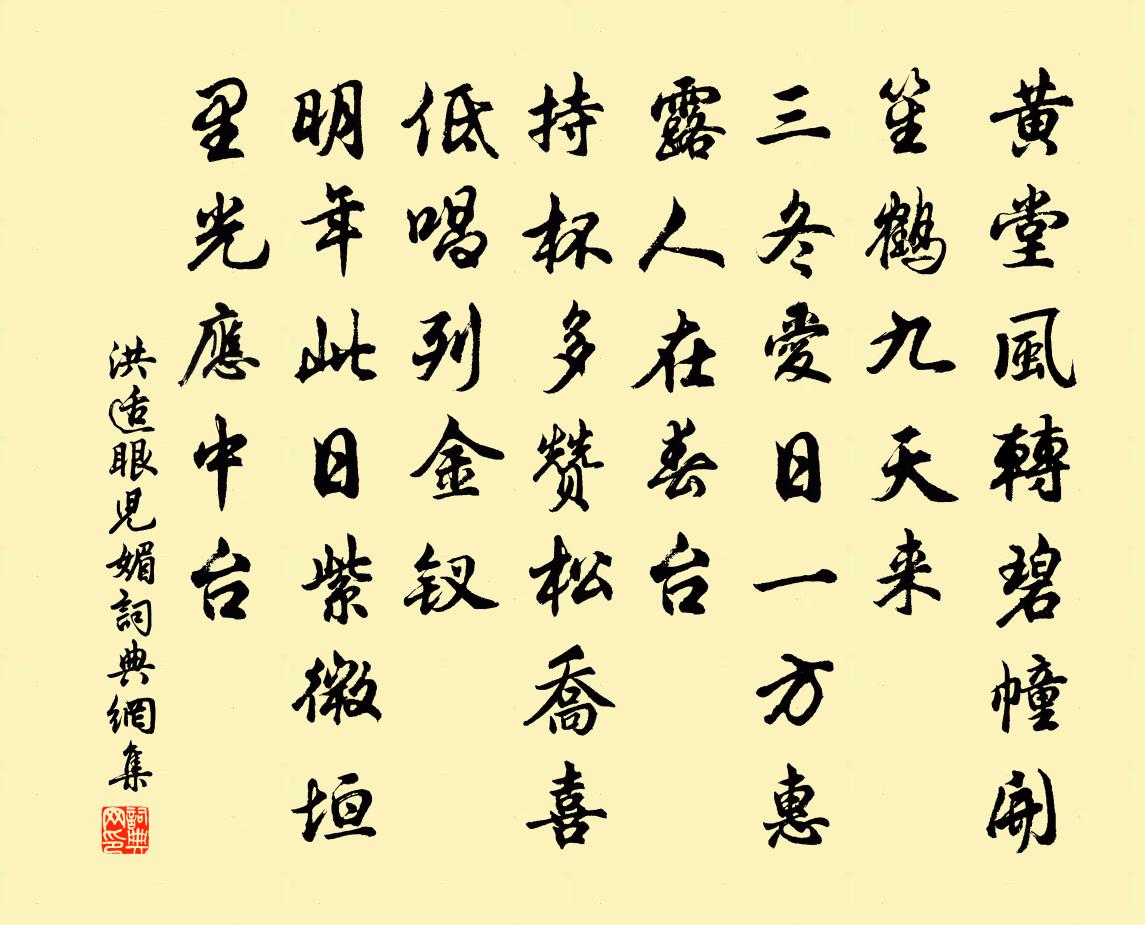 黄堂風轉碧幢開
笙鶴九天来
三冬愛日一方惠
露人在春台
持杯多赞松喬喜
低唱列金钗
明年此日紫微垣
星光應中台
洪适眼児媚詞典網集
詞典网印